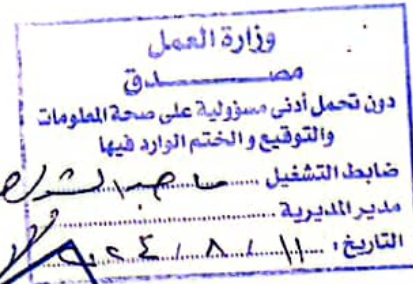 وزارة العمل
مصـــــــدق
دون تحمل أدنى مسؤولية على صحة المعلومات
والتوقيع و الختم الوارد فيها
ضابط التشغيل
مدير المديرية
التاريخ: ١١ / ٨ / ٢٠٢٤